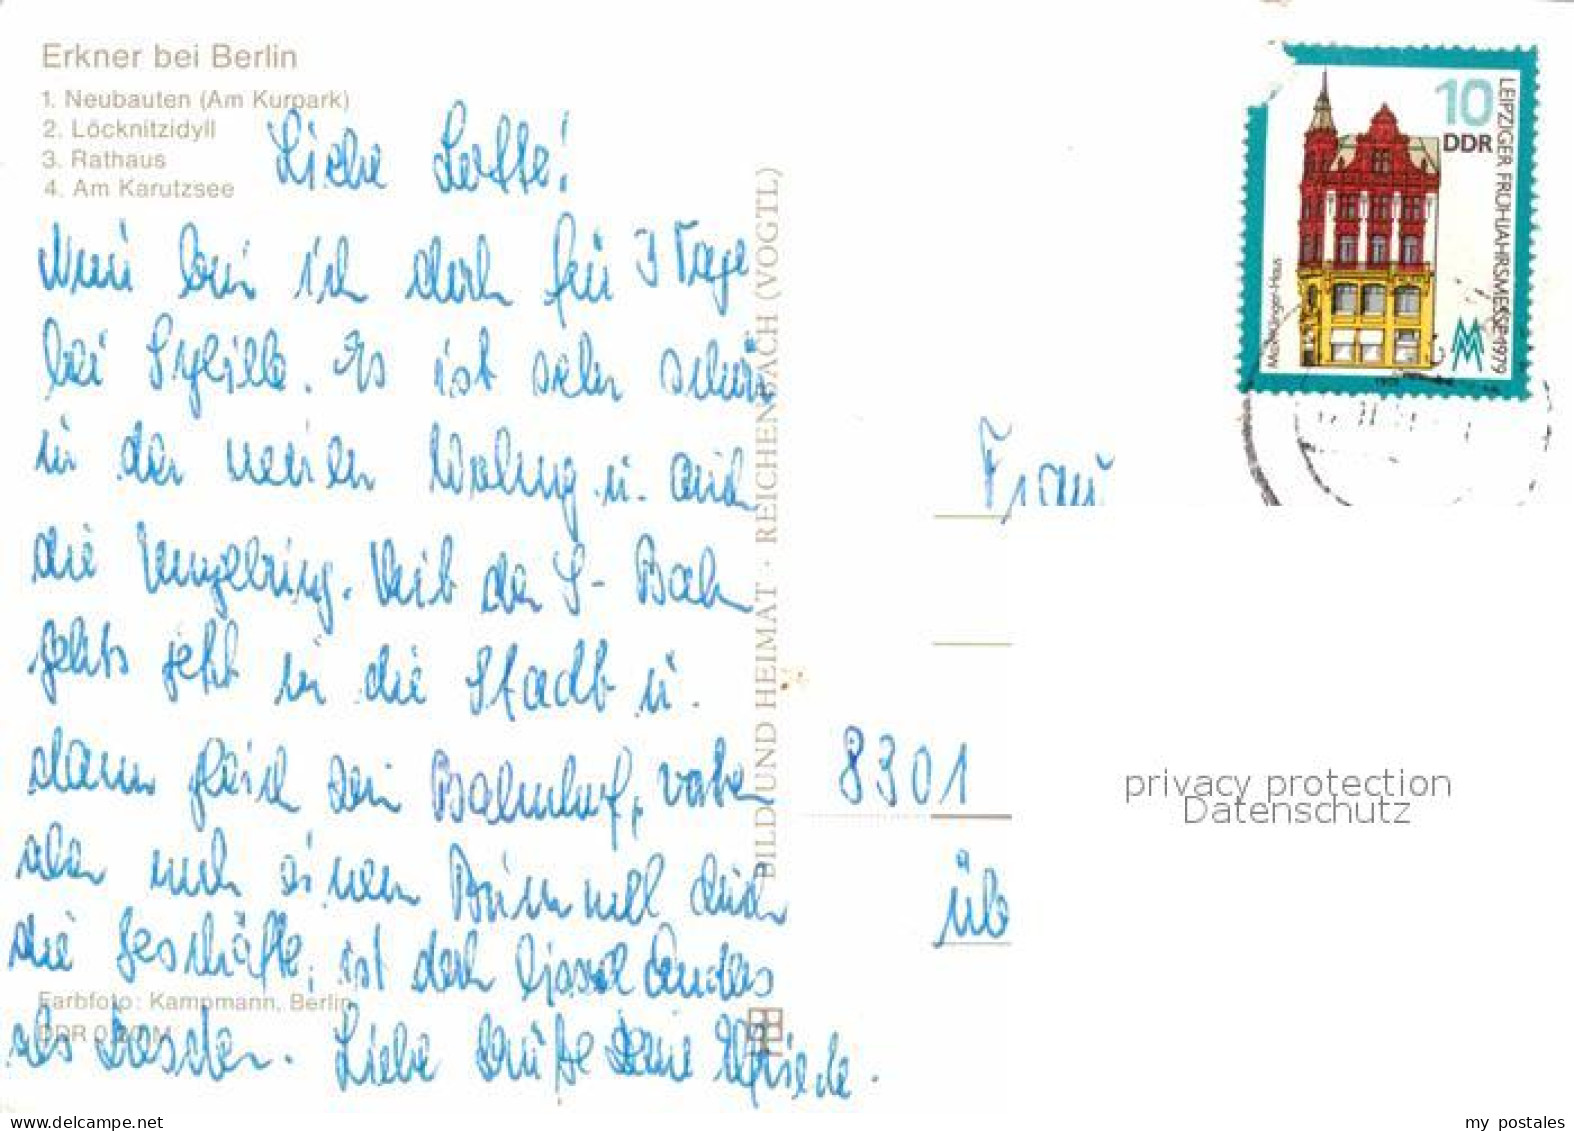 Erkner bei Berlin
1. Neubauten (Am Kurpark)
2. Löcknitzidyll
3. Rathaus
4. Am Karutzsee
Liebe Lotte!
Nun bin ich doch für 3 Tage
bei Sybille. Es ist sehr schön
in der neuen Wohng. u. auch
die Umgebung. Mit der S-Bah
gehts jetzt in die Stadt u.
dann gleich zum Bahnhof, vorher
aber noch einen Bummel durch
die Geschäfte, ist doch bissel anders
als Dresden. Liebe Grüße Deine Elfriede.
Farbfoto: Kampmann, Berlin
BILD UND HEIMAT · REICHENBACH (VOGTL)
10
DDR
LEIPZIGER FRÜHJAHRSMESSE 1979
Mädler-Haus
Frau
8301
üb
privacy protection
Datenschutz
www.delcampe.net
my_postales